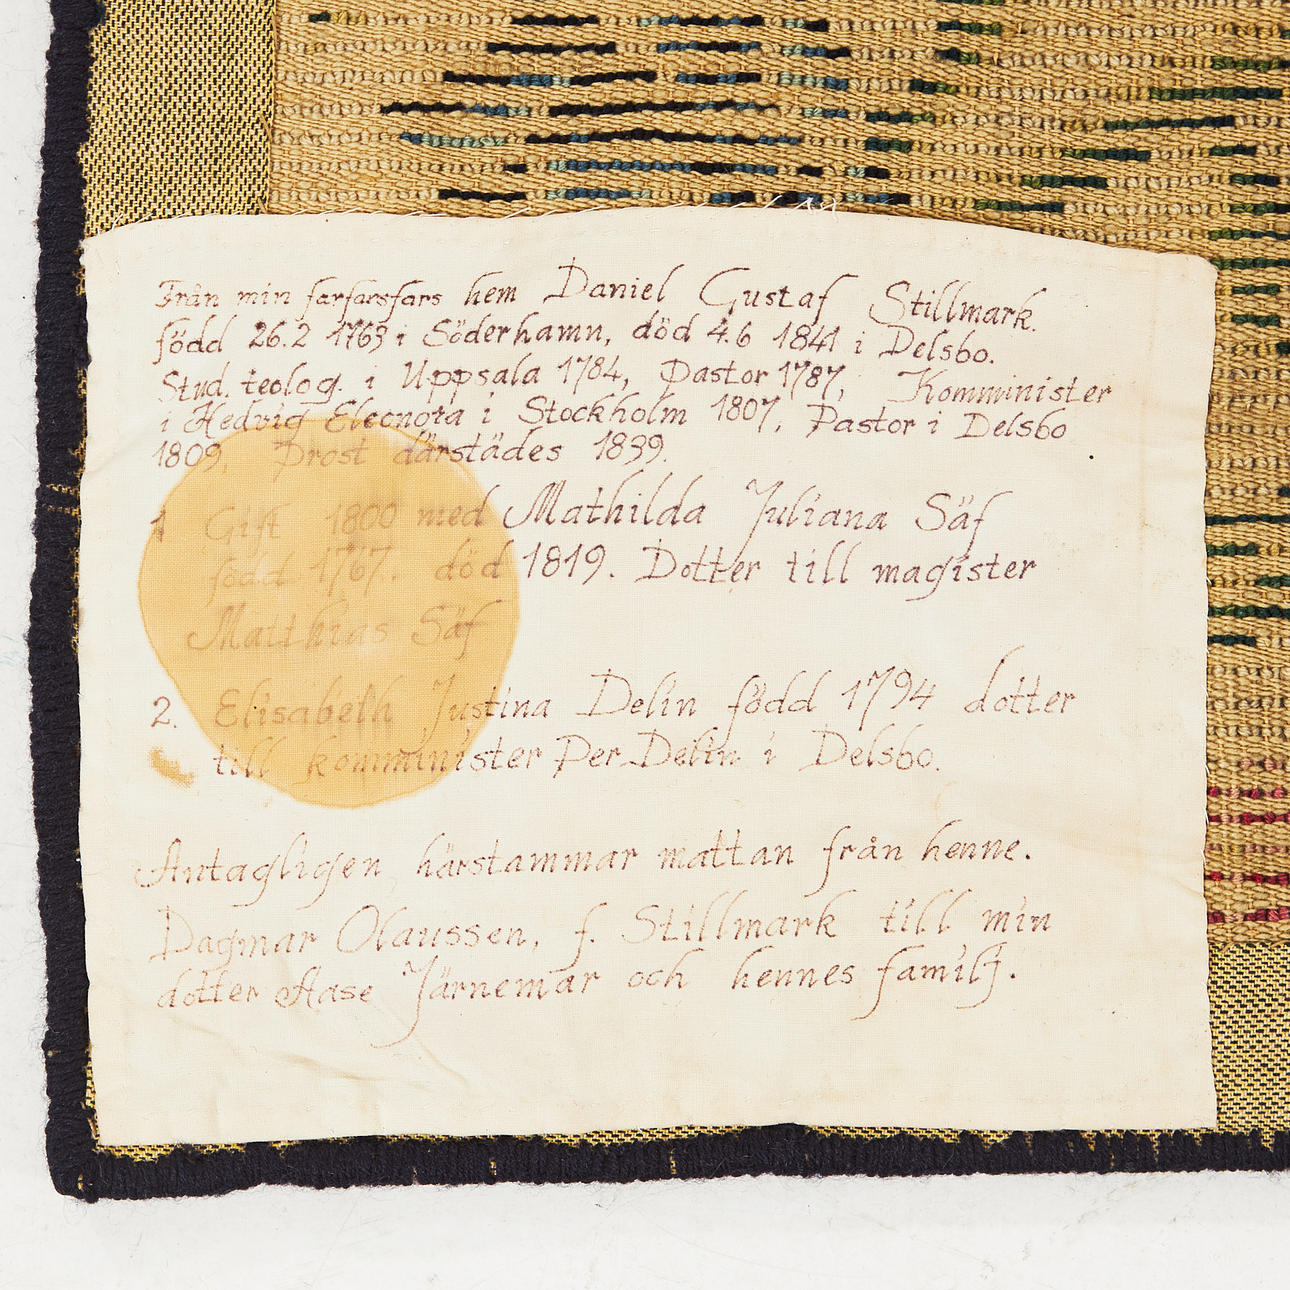 Från min farfarsfars hem Daniel Gustaf Stillmark.
född 26.2 1763 i Söderhamn, död 4.6 1841 i Delsbo.
Stud. teolog. i Uppsala 1784, Pastor 1787, Komminister
i Hedvig Eleonora i Stockholm 1807, Pastor i Delsbo
1809, Prost därstädes 1839.
1 Gift 1800 med Mathilda Juliana Säf
född 1767. död 1819. Dotter till magister
Matthias Säf
2. Elisabeth Justina Delin född 1794 dotter
till komminister Per Delin i Delsbo.
Antagligen härstammar mattan från henne.
Dagmar Olaussen, f. Stillmark till min
dotter Aase Järnemar och hennes familj.